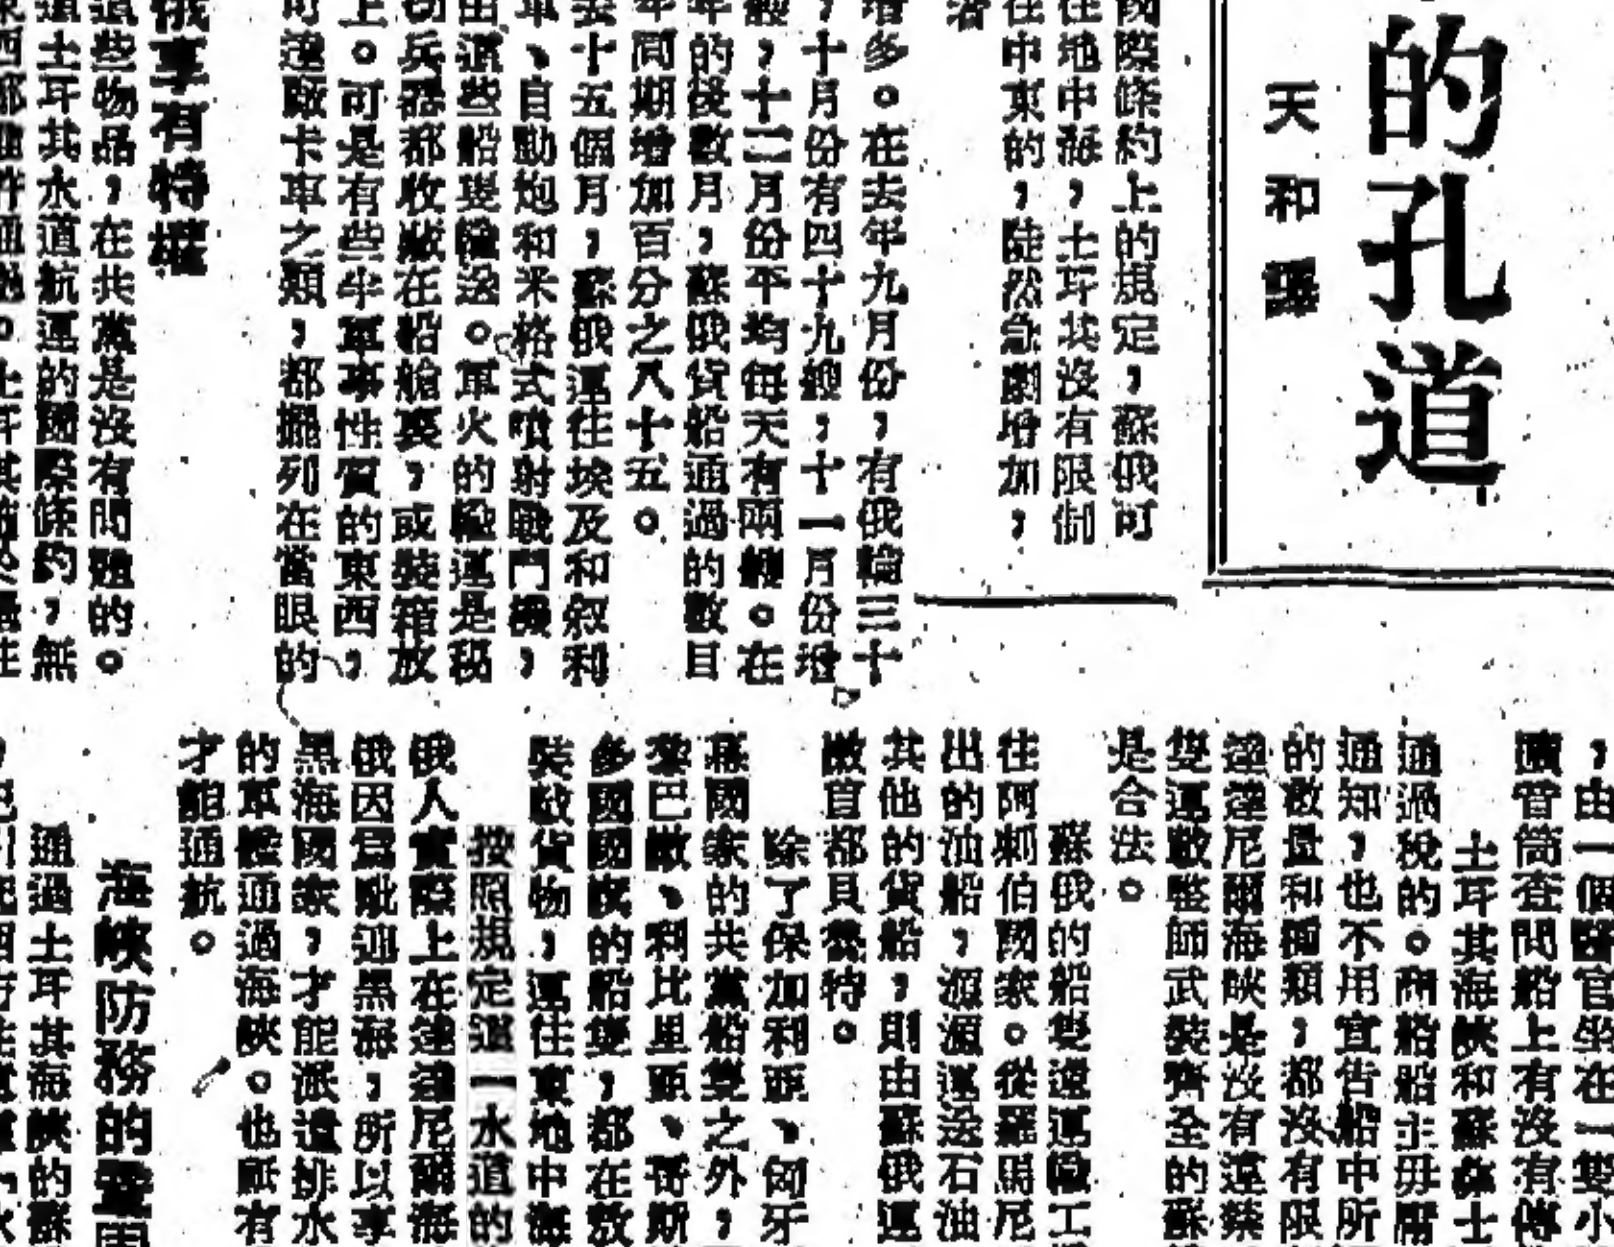 的孔道
天和譯
國際條約上的規定，蘇俄可
在地中海，土耳其沒有限制
在中東的，陡然急劇增加，
者
增多。在去年九月份，有俄輪三十
，十月份有四十九艘，十一月份增
艘，十二月份平均每天有兩艘。在
年的後數月，蘇俄貨船通過的數目
年同期增加百分之八十五。
去十五個月，蘇俄運往埃及和敘利
車、自動炮和米格式噴射戰鬥機，
由這些船隻輸送。軍火的輸運是秘
切兵器都收藏在船艙裏，或裝箱放
上。可是有些半軍事性質的東西，
可達廠卡車之類，都擺列在當眼的
俄享有特權
這些物品，在共黨是沒有問題的。
道土耳其水道航運的國際條約，無
，由一個醫官坐在一雙小
讀管筒查問船上有沒有傳
土耳其海峽和蘇彝士
通過稅的。商船船主毋需
通知，也不用宣告船中所
的數量和種類，都沒有限
達達尼爾海峽是沒有違禁
隻運數整師武裝齊全的蘇
是合法。
蘇俄的船隻遠運輸工
往阿剌伯國家。從羅馬尼
出的油船，源源運送石油
其他的貨船，則由蘇俄運
敵首都貝魯特。
除了保加利亞、匈牙
幕國家的共黨船隻之外，
黎巴嫩、利比里亞、哥斯
多國國旗的船隻，都在敖
裝載貨物，運往東地中海
按照規定這一水道的
俄人實際上在達達尼爾海
俄因爲毗連黑海，所以享
黑海國家，才能派遣排水
的軍艦通過海峽。也祇有
才能通航。
海峽防務的
通過土耳其海峽的蘇